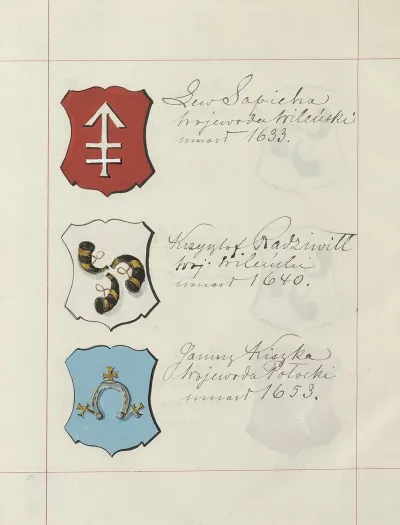 Lew Sapieha
Wojewoda Wileński
umarł 1633.
Krzysztof Radziwiłł
woj. Wileński
umarł 1640.
Janusz Kiszka
Wojewoda Połocki
umarł 1653.